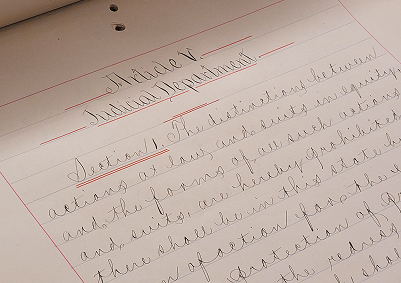 Article V.
Judicial Department.
Section 1. The distinctions between
actions at law, and suits in equity,
and the forms of all such actions
and suits, are hereby prohibited
there shall be in this state but
of action for the
protection of
the redress
shall